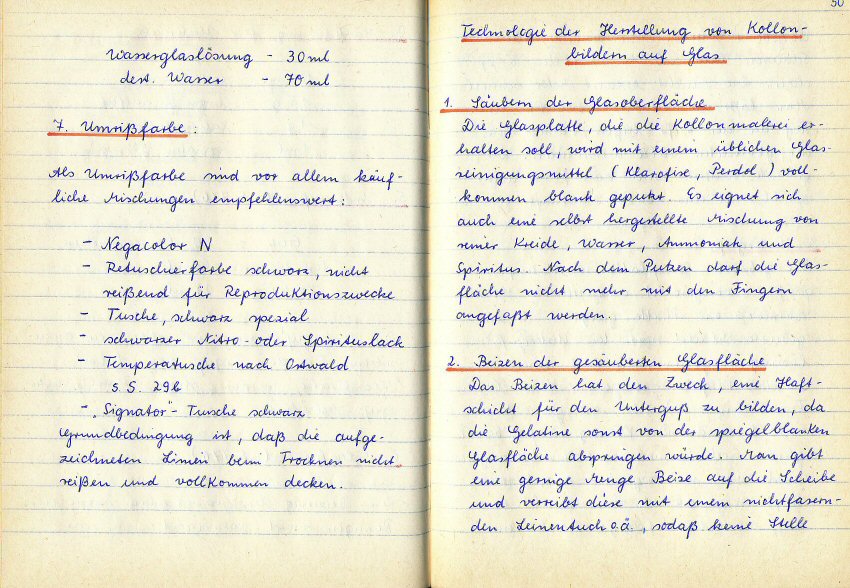 Wasserglaslösung - 30 ml
dest. Wasser - 70 ml
7. Umrißfarbe:
Als Umrißfarbe sind vor allem käuf-
liche Mischungen empfehlenswert:
- Negacolor N
- Retuschierfarbe schwarz, nicht
reißend für Reproduktionszwecke
- Tusche, schwarz spezial
- schwarzer Nitro- oder Spirituslack
- Temperatusche nach Ostwald
s. S. 29b
- „Signator"- Tusche schwarz
Grundbedingung ist, daß die aufge-
zeichneten Linien beim Trocknen nicht
reißen und vollkommen decken.
50
Technologie der Herstellung von Kollon-
bildern auf Glas
1. Säubern der Glasoberfläche
Die Glasplatte, die die Kollonmalerei er-
halten soll, wird mit einem üblichen Glas-
reinigungsmittel (Klarofix, Perdol) voll-
kommen blank geputzt. Es eignet sich
auch eine selbst hergestellte Mischung von
reiner Kreide, Wasser, Ammoniak und
Spiritus. Nach dem Putzen darf die Glas-
fläche nicht mehr mit den Fingern
angefaßt werden.
2. Beizen der gesäuberten Glasfläche
Das Beizen hat den Zweck, eine Haft-
schicht für den Unterguß zu bilden, da
die Gelatine sonst von der spiegelblanken
Glasfläche abspringen würde. Man gibt
eine geringe Menge Beize auf die Scheibe
und verreibt diese mit einem nichtfasern-
den Leinentuch o.ä., sodaß keine Stelle